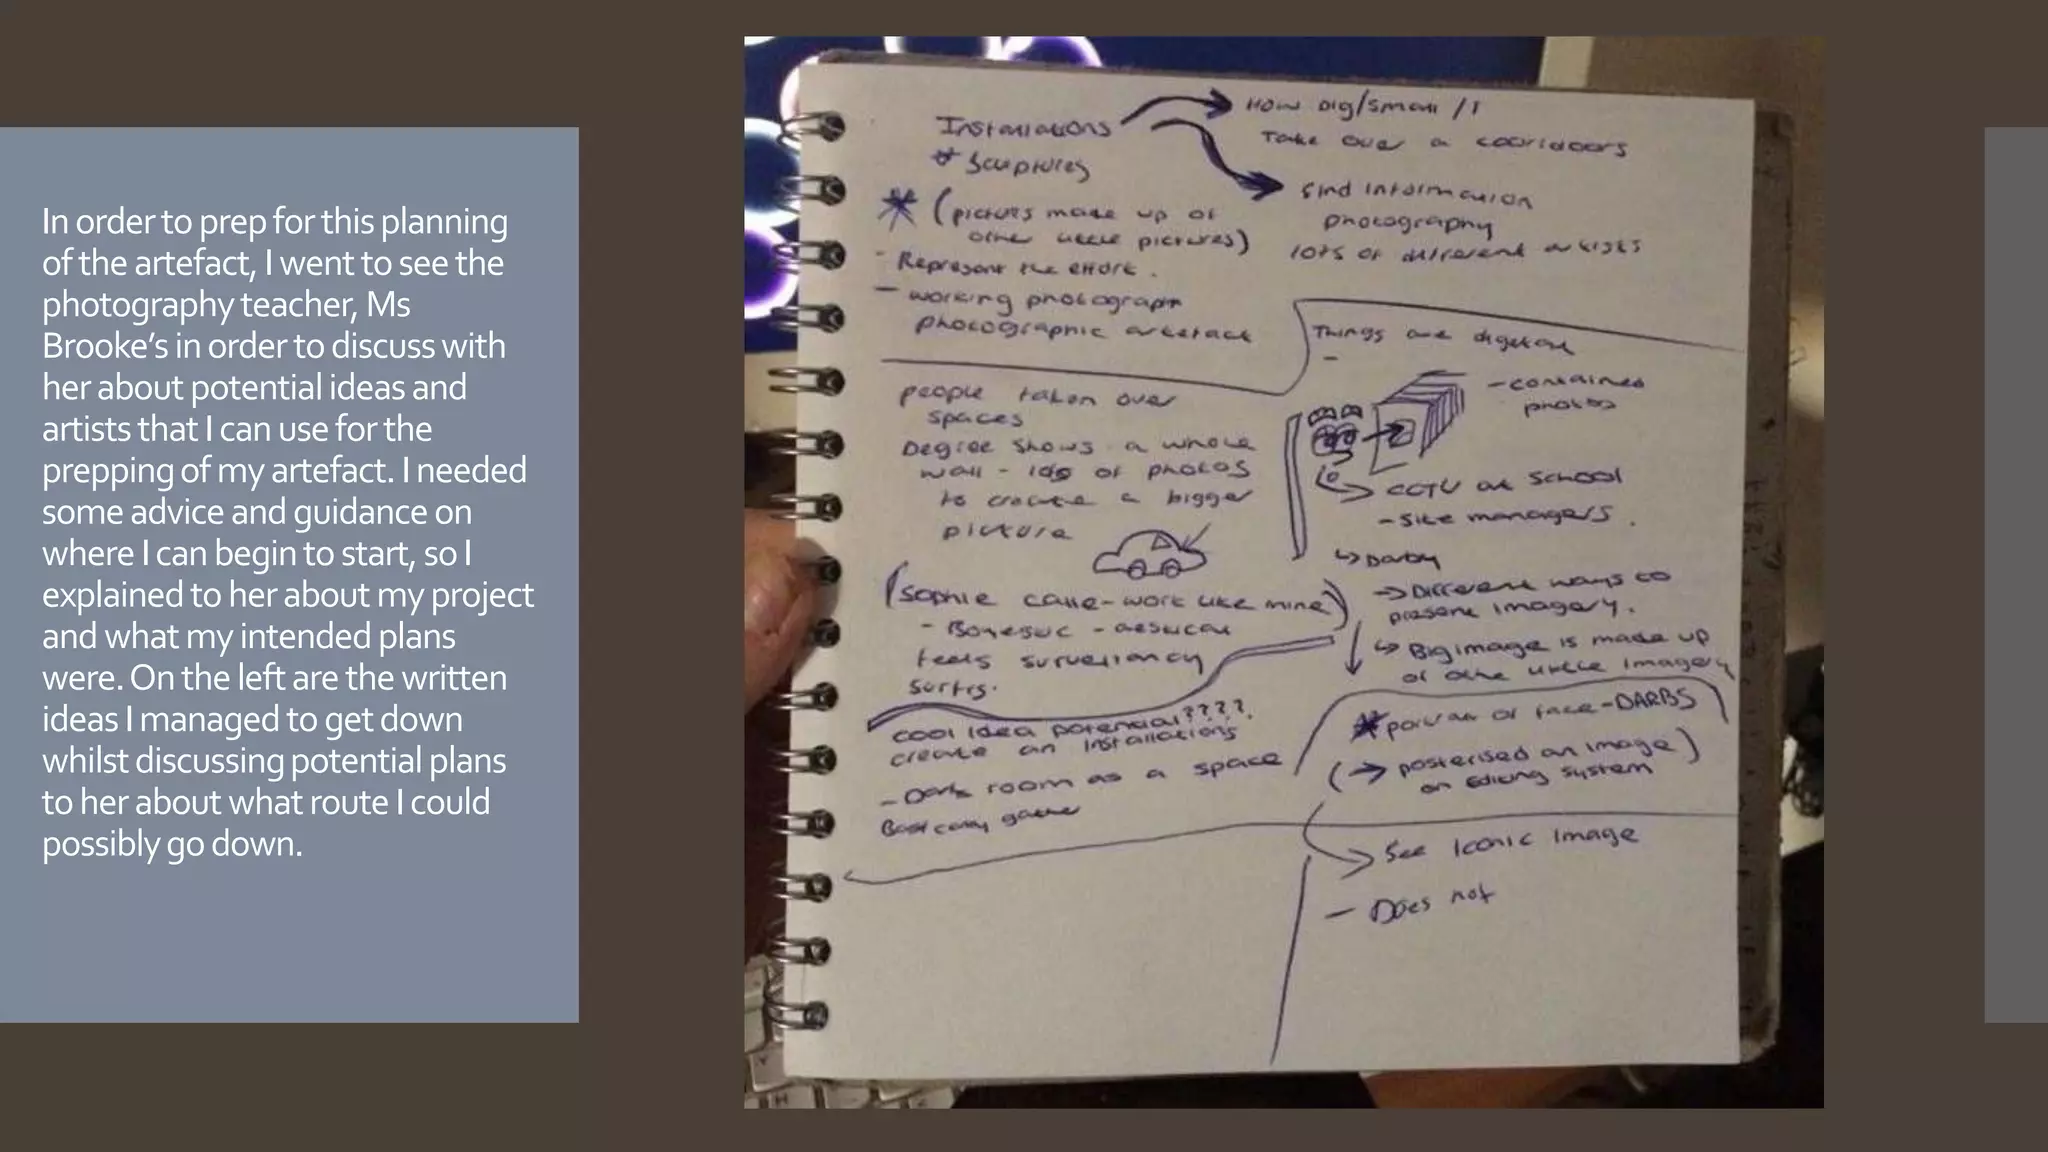 In order to prep for this planning
of the artefact, I went to see the
photography teacher, Ms
Brooke's in order to discuss with
her about potential ideas and
artists that I can use for the
prepping of my artefact. I needed
some advice and guidance on
where I can begin to start, so I
explained to her about my project
and what my intended plans
were. On the left are the written
ideas I managed to get down
whilst discussing potential plans
to her about what route I could
possibly go down.
Installations
Sculptures
(pictures made up of
other little pictures)
- Represent the effort.
- working photograph
photographic artefact
How big/small /
Take over a cooridoors
find information
photography
lots of different artists
people taken over
spaces
Degree shows a whole
wall - of photos
to create a bigger
picture
(Sophie calle - work like mine)
-
feels
cool idea potential????.
create an installations
- Dark room as a space
Things are digital
-
- contained
photos
CCTV at School
- Site managers.
→ Different ways to
present imagery.
Big image is made up
of other little imagery
* portrait of face - DARBS
(→ posterised an image)
on editing system
See Iconic Image
- Does not